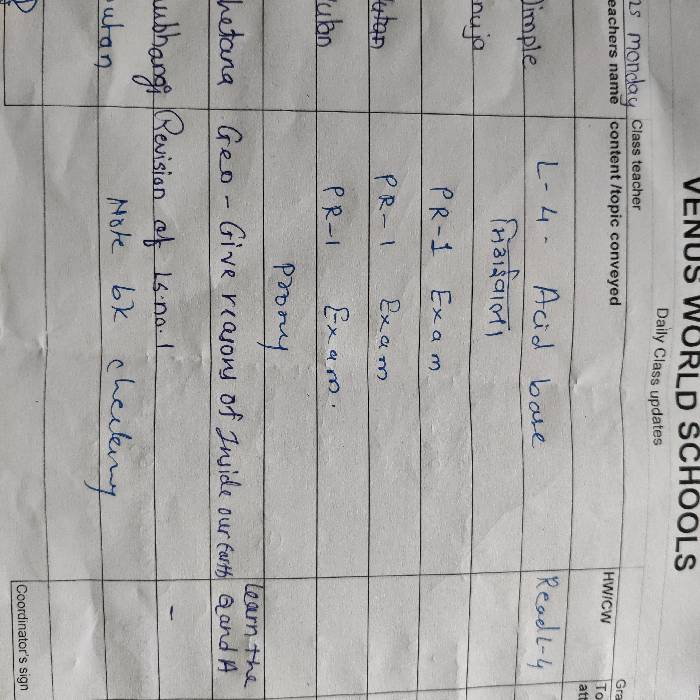 VENUS WORLD SCHOOLS
Daily Class updates
monday Class teacher
eachers name content /topic conveyed HW/CW
Dimple L-4- Acid base Read L-4
nuja मिठाईवाला
PR-1 Exam
utan PR-1 Exam
utan PR-1 Exam.
Proxy
hetana Geo - Give reasons of Inside our Earth Learn the Q and A
ubhangi Revision of Ls.no.1 -
utan Note bk checking
Coordinator's sign